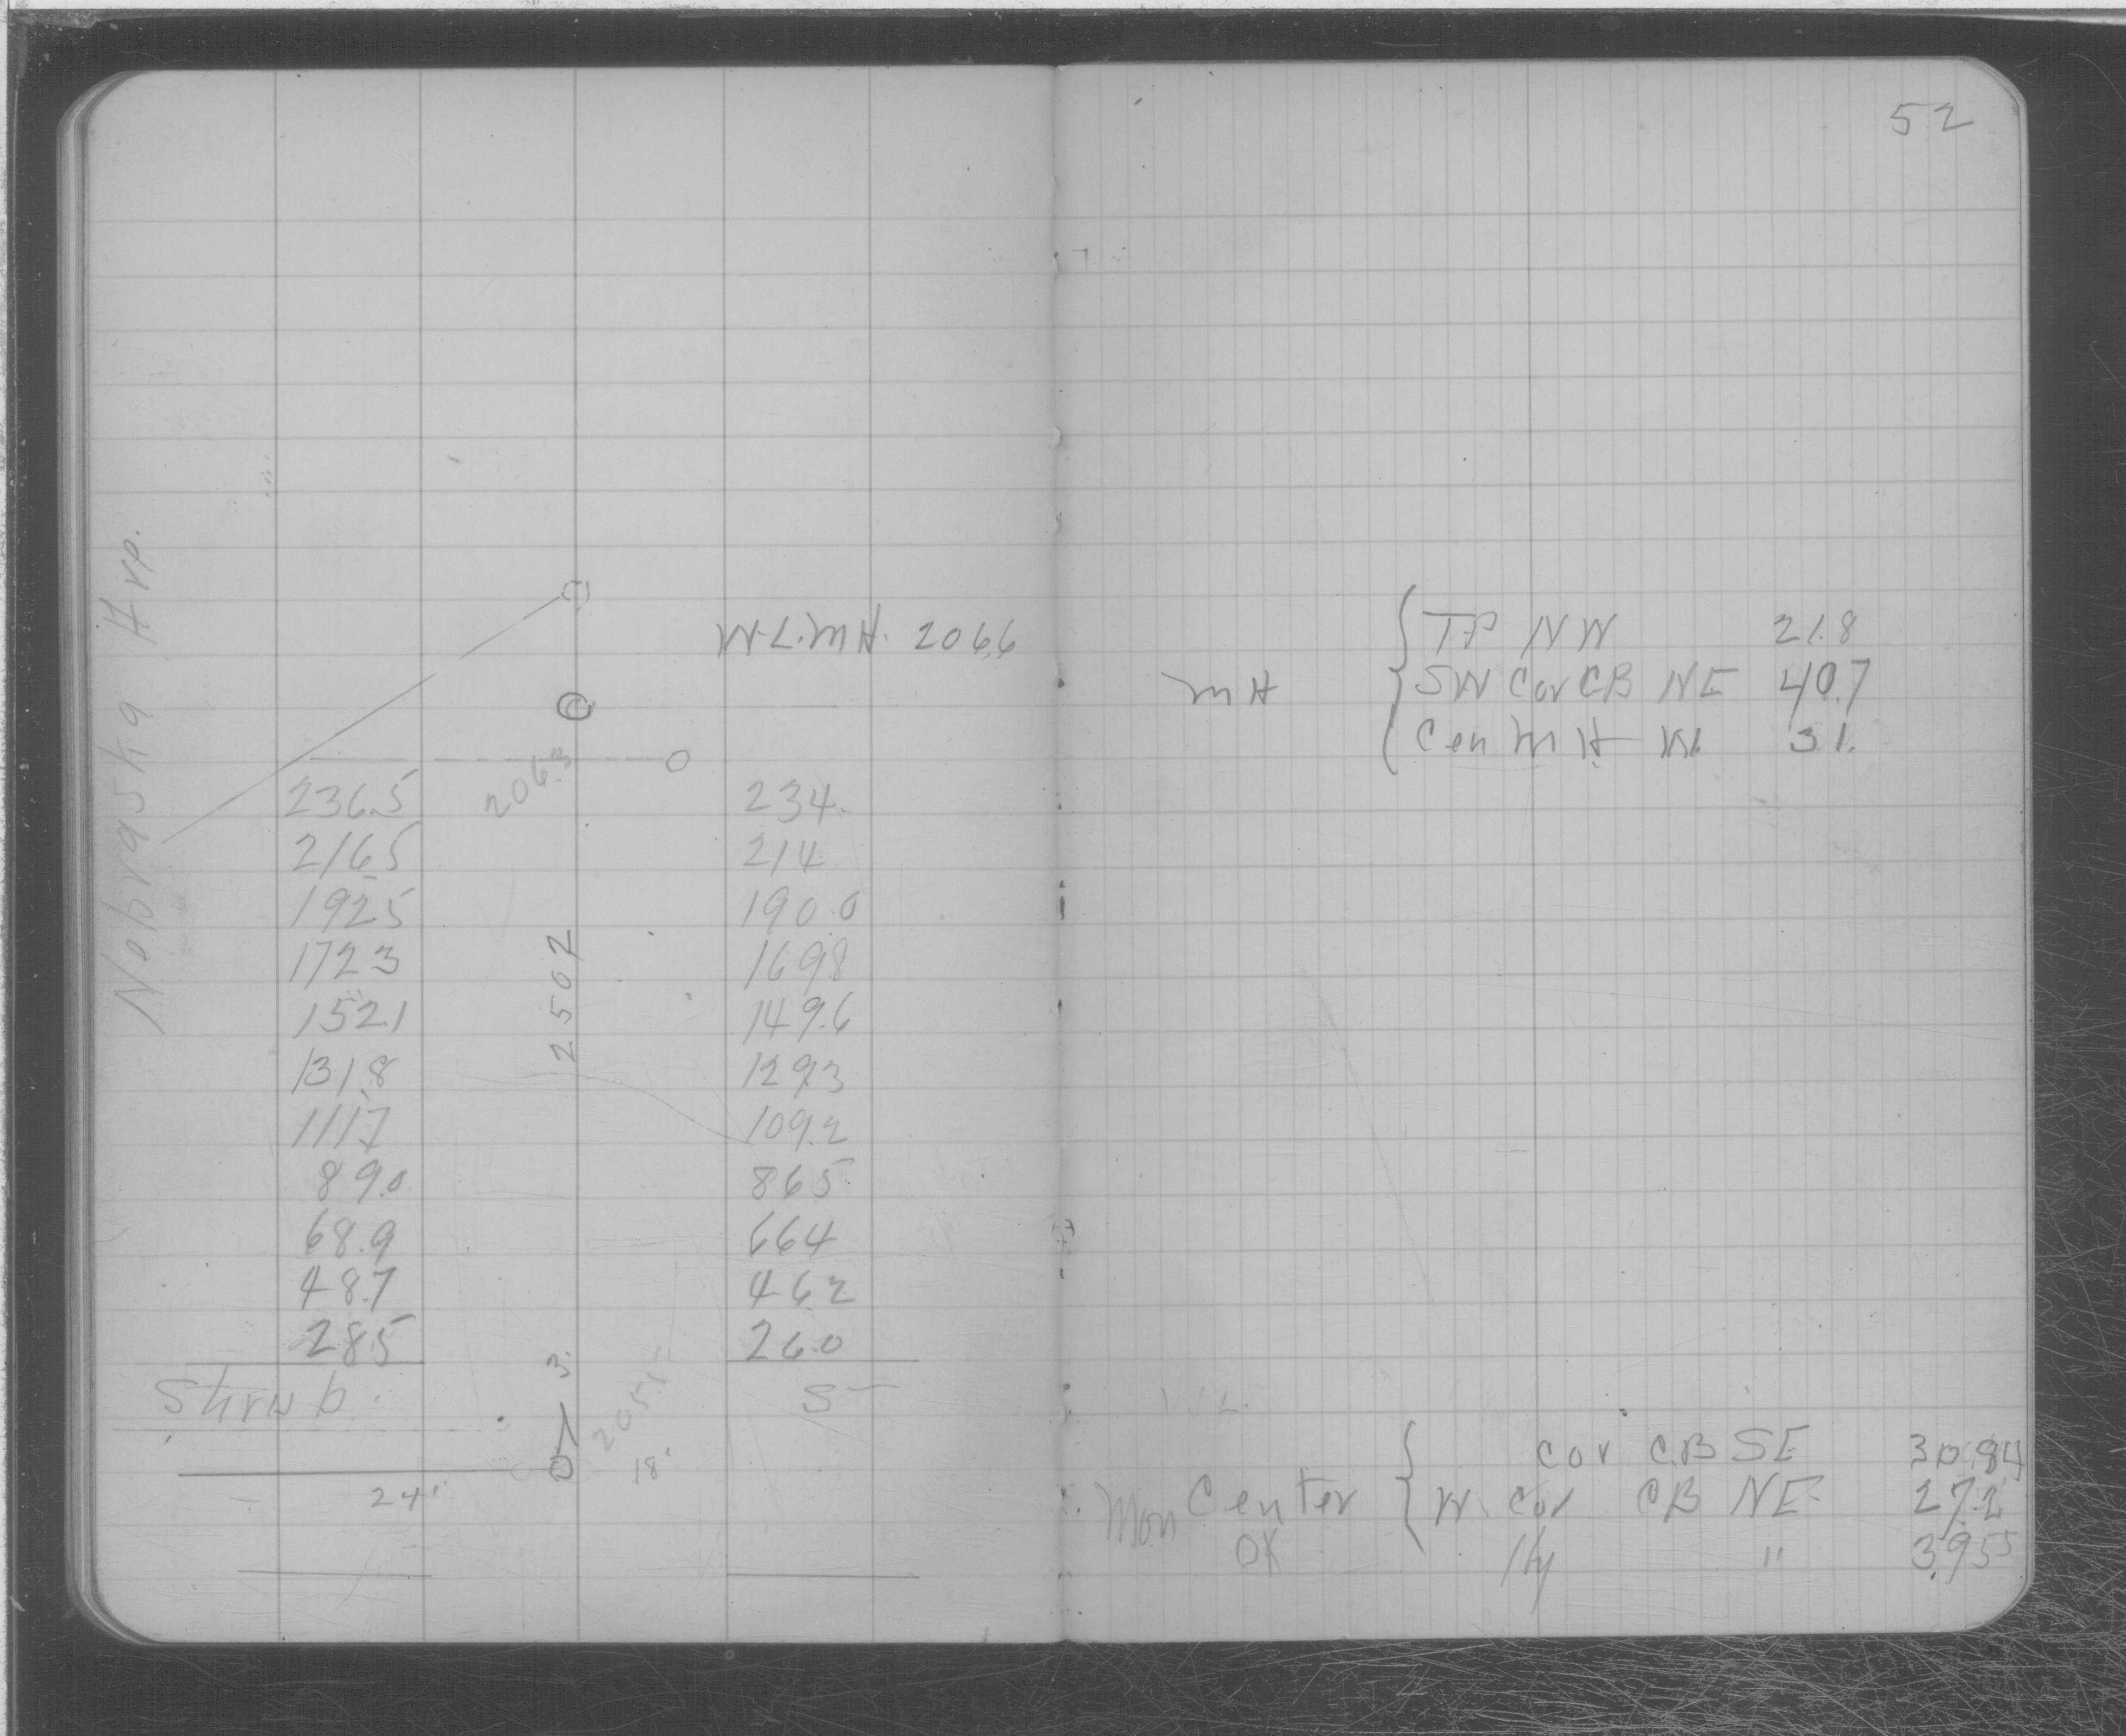 52
Nebraska Ave.
W.L. MH. 206.6
206.3
236.5 234.
216.5 214
192.5 190.0
172.3 169.8
152.1 149.6
131.8 129.3
111.7 109.2
89.0 86.5
68.9 66.4
48.7 46.2
28.5 26.0
2507
3.
Shrub. S
205.5
18'
24'
TP NW 21.8
MH SW Cor CB NE 40.7
Cen MH W. 31.
Cor CB SE 30.84
Mon Center W. Cor CB NE 27.2
OK " 39.55